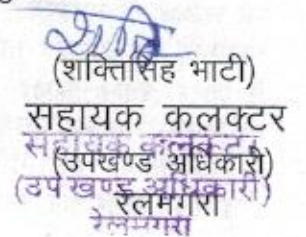 (शक्तिसिंह भाटी)
सहायक कलक्टर
सहायक कलक्टर
(उपखण्ड अधिकारी)
(उपखण्ड अधिकारी)
रेलमगरा
रेलमगरा